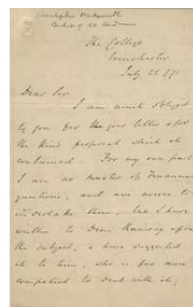 Christopher Wordsworth
Bishop of St Andrews
The College
Winchester
July 22
Dear Sir
I am much obliged
to you for your letter & for
the kind proposal which it
contained. For my own part
I am no master of Financial
questions, and am averse to
them, but I have
written to Dean Ramsay upon
the subject, & have suggested
it to him, who is far more
competent to deal with it,